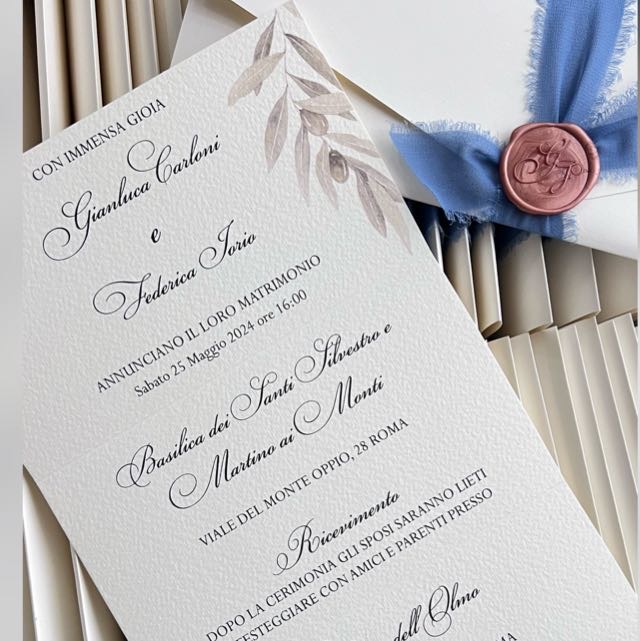 CON IMMENSA GIOIA
Gianluca Carloni
e
Federica Iorio
ANNUNCIANO IL LORO MATRIMONIO
Sabato 25 Maggio 2024 ore 16:00
Basilica dei Santi Silvestro e
Martino ai Monti
VIALE DEL MONTE OPPIO, 28 ROMA
Ricevimento
DOPO LA CERIMONIA GLI SPOSI SARANNO LIETI
FESTEGGIARE CON AMICI E PARENTI PRESSO
dell'Olmo